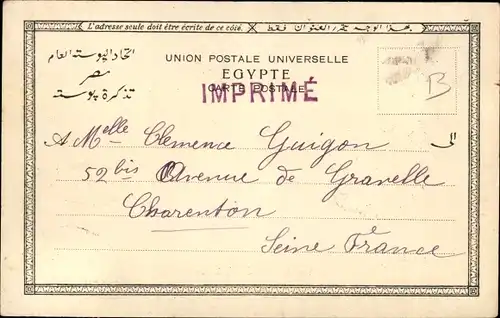 L'adresse seule doit être écrite de ce côté. بهذا الوجه يحرر العنوان فقط
اتحاد البوسته العام
مصر
تذكرة بوستة
UNION POSTALE UNIVERSELLE
EGYPTE
CARTE POSTALE
IMPRIMÉ
B
A Melle Clemence Guigon
الى
52 bis Avenue de Gravelle
Charenton
Seine France